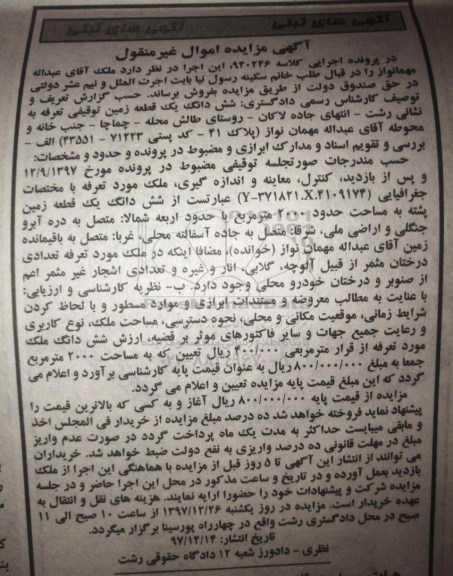 آگهی های ثبتی
آگهی های ثبتی
آگهی مزایده اموال غیرمنقول
در پرونده اجرایی کلاسه ۹۳۰۲۴۶، این اجرا در نظر دارد ملک آقای عبداله
مهمانواز را در قبال طلب خانم سکینه رسول نیا بابت اجرت المثل و نیم عشر دولتی
در حق صندوق دولت از طریق مزایده بفروش برساند. حسب گزارش تعریف و
توصیف کارشناس رسمی دادگستری: شش دانگ یک قطعه زمین توقیفی تعرفه به
نشانی رشت - انتهای جاده لاکان - روستای طالش محله - چماچا - جنب خانه و
محوطه آقای عبداله مهمان نواز (پلاک ۴۱ - کد پستی ۷۱۲۳۳ - ۴۳۵۵۱) الف -
بررسی و تقویم اسناد و مدارک ابرازی و مضبوط در پرونده و حدود و مشخصات:
حسب مندرجات صورتجلسه توقیفی مضبوط در پرونده مورخ ۱۲/۹/۱۳۹۷
و پس از بازدید، کنترل، معاینه و اندازه گیری، ملک مورد تعرفه با مختصات
جغرافیایی (Y-۳۷۱۸۲۱.X.۴۱۰۹۱۷۴) عبارتست از شش دانگ یک قطعه زمین
پشته به مساحت حدود ۲۰۰۰ مترمربع با حدود اربعه شمالا: متصل به دره آبرو
جنگلی و اراضی ملی، شرقا: متصل به جاده آسفالته محلی، غربا: متصل به باقیمانده
زمین آقای عبداله مهمان نواز (خوانده)، مضافا اینکه در ملک مورد تعرفه تعدادی
درختان مثمر از قبیل آلوچه، گلابی، انار و غیره و تعدادی اشجار غیر مثمر اعم
از صنوبر و درختان خودرو محلی وجود دارد. ب- نظریه کارشناسی و ارزیابی:
با عنایت به مطالب معروضه و مستندات ابرازی و موارد مسطور و با لحاظ کردن
شرایط زمانی، موقعیت مکانی و محلی، نحوه دسترسی، مساحت ملک، نوع کاربری
و رعایت جمیع جهات و سایر فاکتورهای موثر بر قضیه، ارزش شش دانگ ملک
مورد تعرفه از قرار مترمربعی ۴۰۰/۰۰۰ ریال تعیین که به مساحت ۲۰۰۰ مترمربع
جمعا به مبلغ ۸۰۰/۰۰۰/۰۰۰ ریال به عنوان قیمت پایه کارشناسی برآورد و اعلام می
گردد که این مبلغ قیمت پایه مزایده تعیین و اعلام می گردد.
مزایده از قیمت پایه ۸۰۰/۰۰۰/۰۰۰ ریال آغاز و به کسی که بالاترین قیمت را
پیشنهاد نماید فروخته خواهد شد ده درصد مبلغ مزایده از خریدار فی المجلس اخذ
و مابقی میبایست حداکثر به مدت یک ماه پرداخت گردد در صورت عدم واریز
مبلغ در مهلت قانونی ده درصد واریزی به نفع دولت ضبط خواهد شد. خریداران
می توانند از انتشار این آگهی تا ۵ روز قبل از مزایده با هماهنگی این اجرا از ملک
بازدید بعمل آورده و در تاریخ و ساعت مذکور در محل این اجرا حاضر و در جلسه
مزایده شرکت و پیشنهادات خود را حضورا ارایه نمایند. هزینه های نقل و انتقال به
عهده خریدار است. مزایده در روز یکشنبه ۱۳۹۷/۱۲/۲۶ از ساعت ۱۰ صبح الی ۱۱
صبح در محل دادگستری رشت واقع در چهارراه پورسینا برگزار میگردد.
تاریخ انتشار: ۹۷/۱۲/۱۴
نظری - دادورز شعبه ۱۲ دادگاه حقوقی رشت